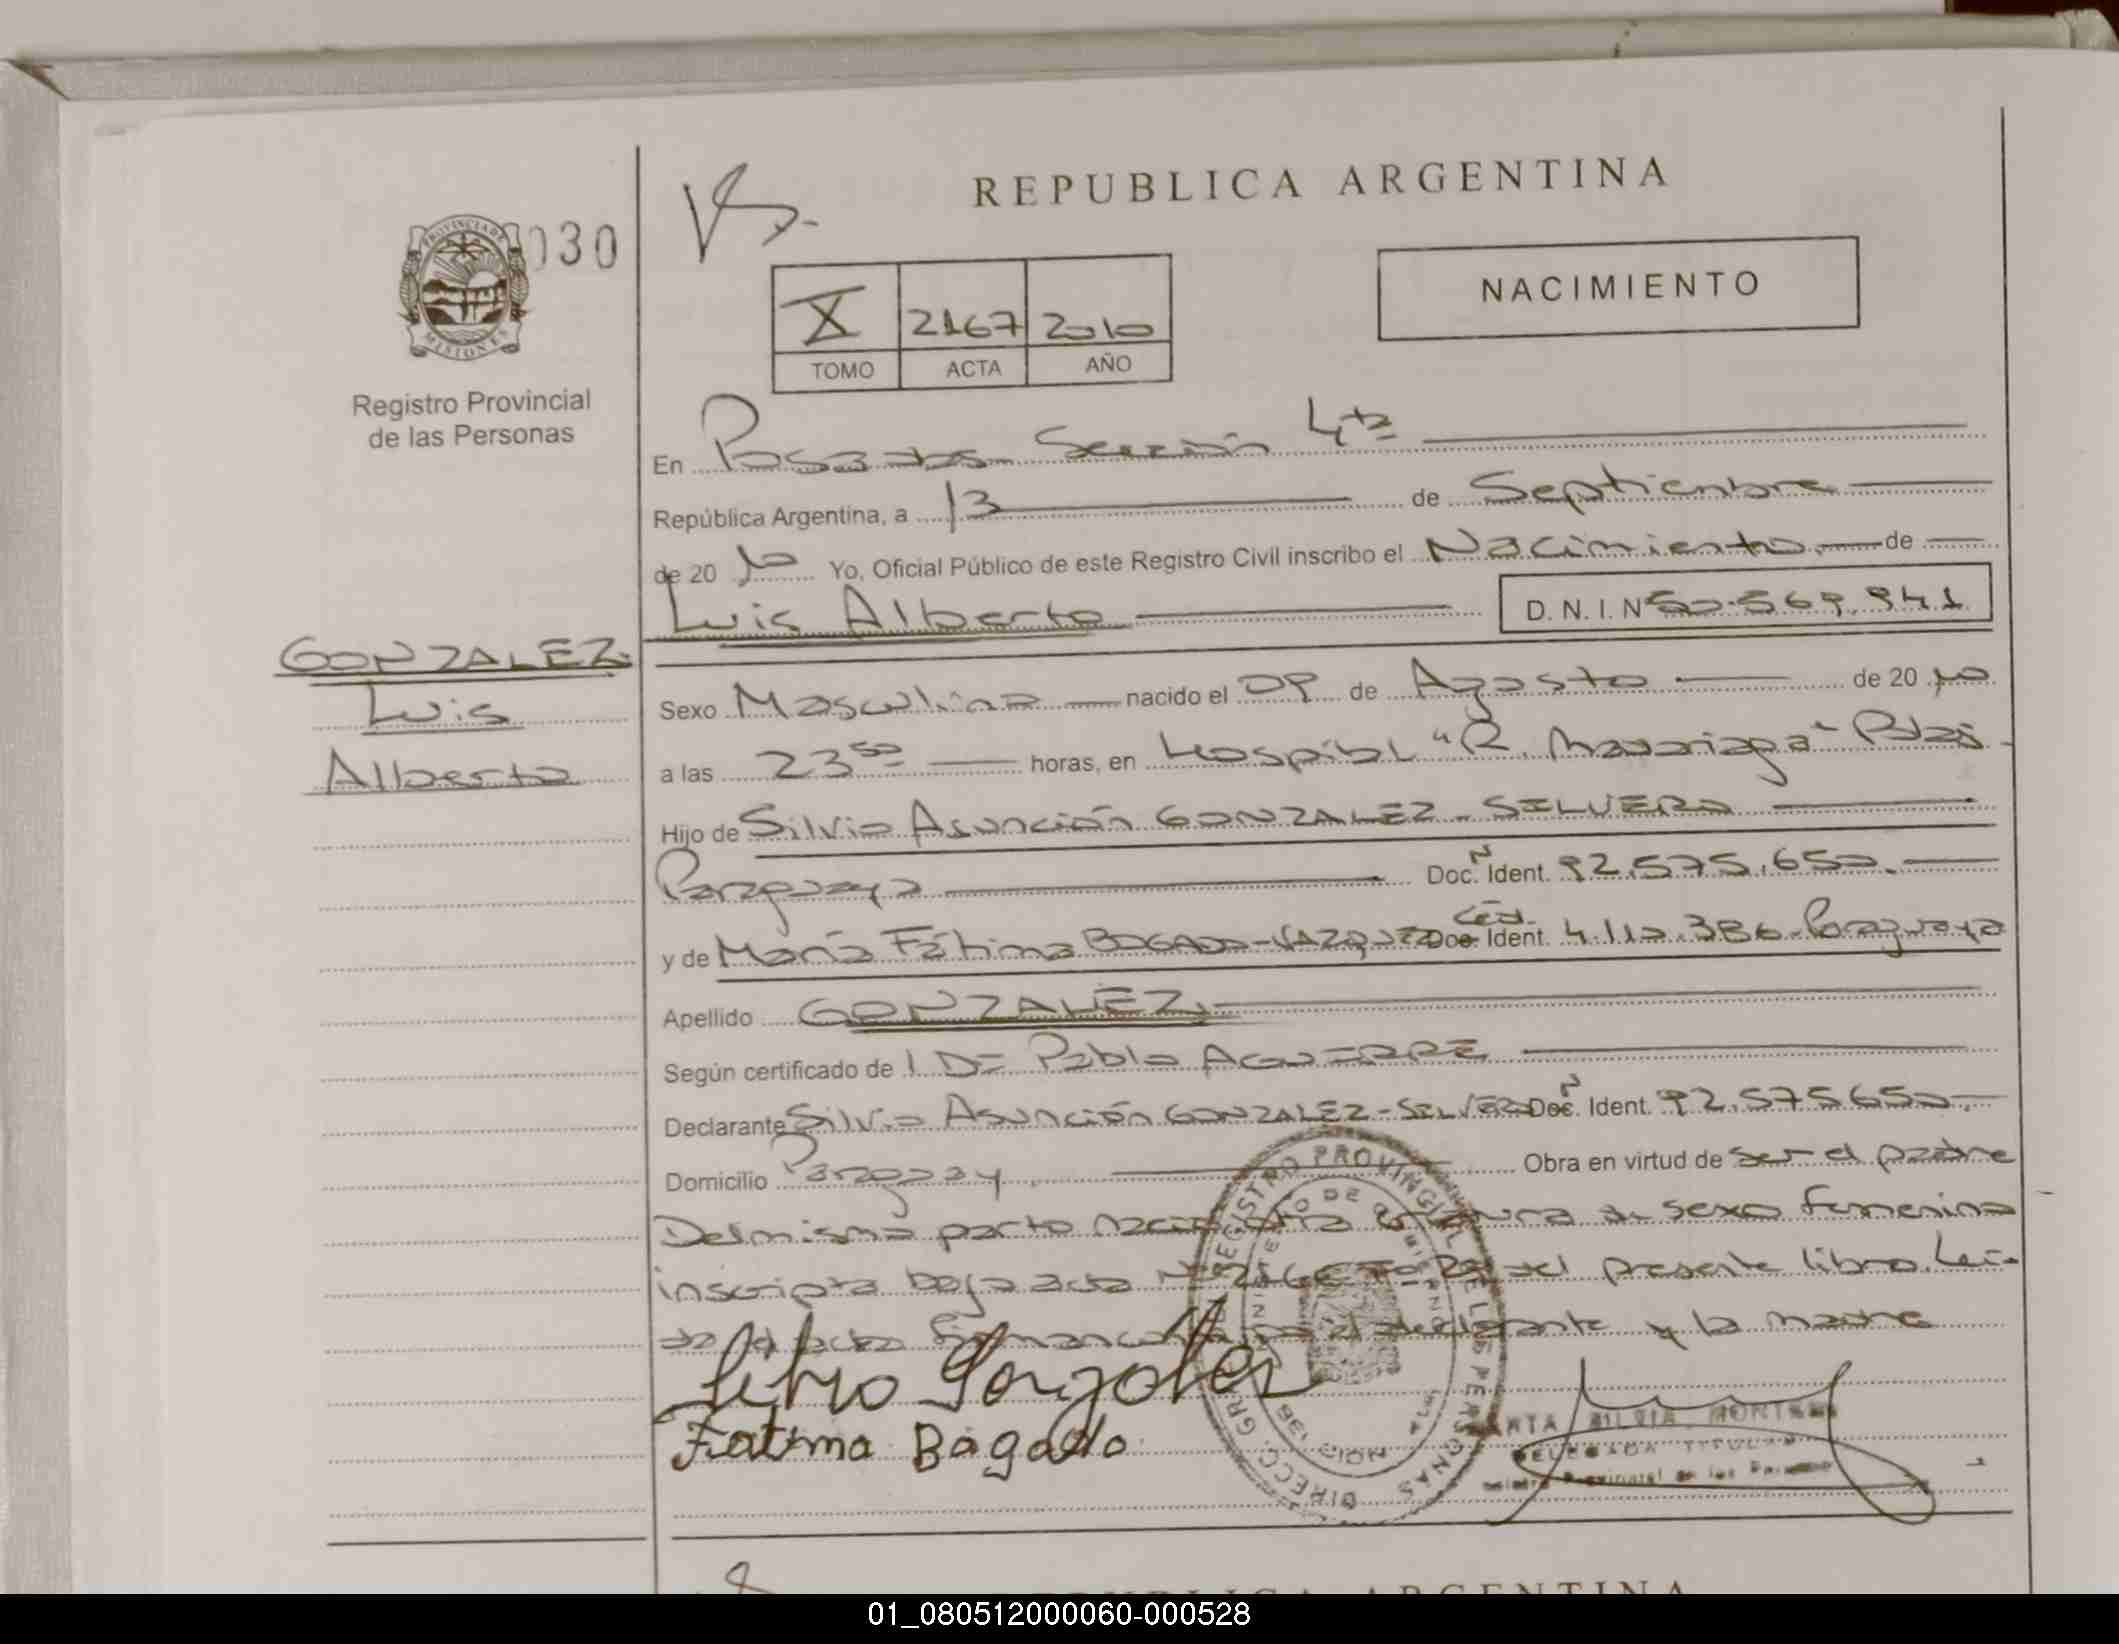 REPUBLICA ARGENTINA
030
PROVINCIA DE MISIONES
Registro Provincial
de las Personas
NACIMIENTO
X 2167 2010
TOMO ACTA AÑO
En Posadas Sección 4ta
República Argentina, a 13 de Septiembre
de 2010 Yo, Oficial Público de este Registro Civil inscribo el Nacimiento de
Luis Alberto D.N.I. Nº 50.569.941
GONZALEZ
Luis
Alberto
Sexo Masculino nacido el 09 de Agosto de 2010
a las 23 50 horas, en Hospital "R. Madariaga" Pdas
Hijo de Silvio Asunción GONZALEZ - SILVERO
Paraguayo Doc. Ident. 92.575.650
y de María Fátima BOGADO - VAZQUEZ Céd. Doc. Ident. 4.110.386 - Paraguaya
Apellido GONZALEZ
Según certificado de Pablo AGUIRRE
Declarante Silvio Asunción GONZALEZ - SILVERO Doc. Ident. 92.575650
Domicilio Paraguay Obra en virtud de ser el padre
Del mismo parto nació otra criatura de sexo femenino
inscripta bajo acta Nº del presente libro. Leí-
da el acta firman el declarante y la madre
Silvio Gonzalez
Fatima Bogado
DIRECC. GRAL. REGISTRO PROVINCIAL DE LAS PERSONAS
MINISTERIO DE GOBIERNO
SILVIA MONTES
DELEGADA TITULAR
Registro Provincial de las Personas
REPUBLICA ARGENTINA
01_080512000060-000528